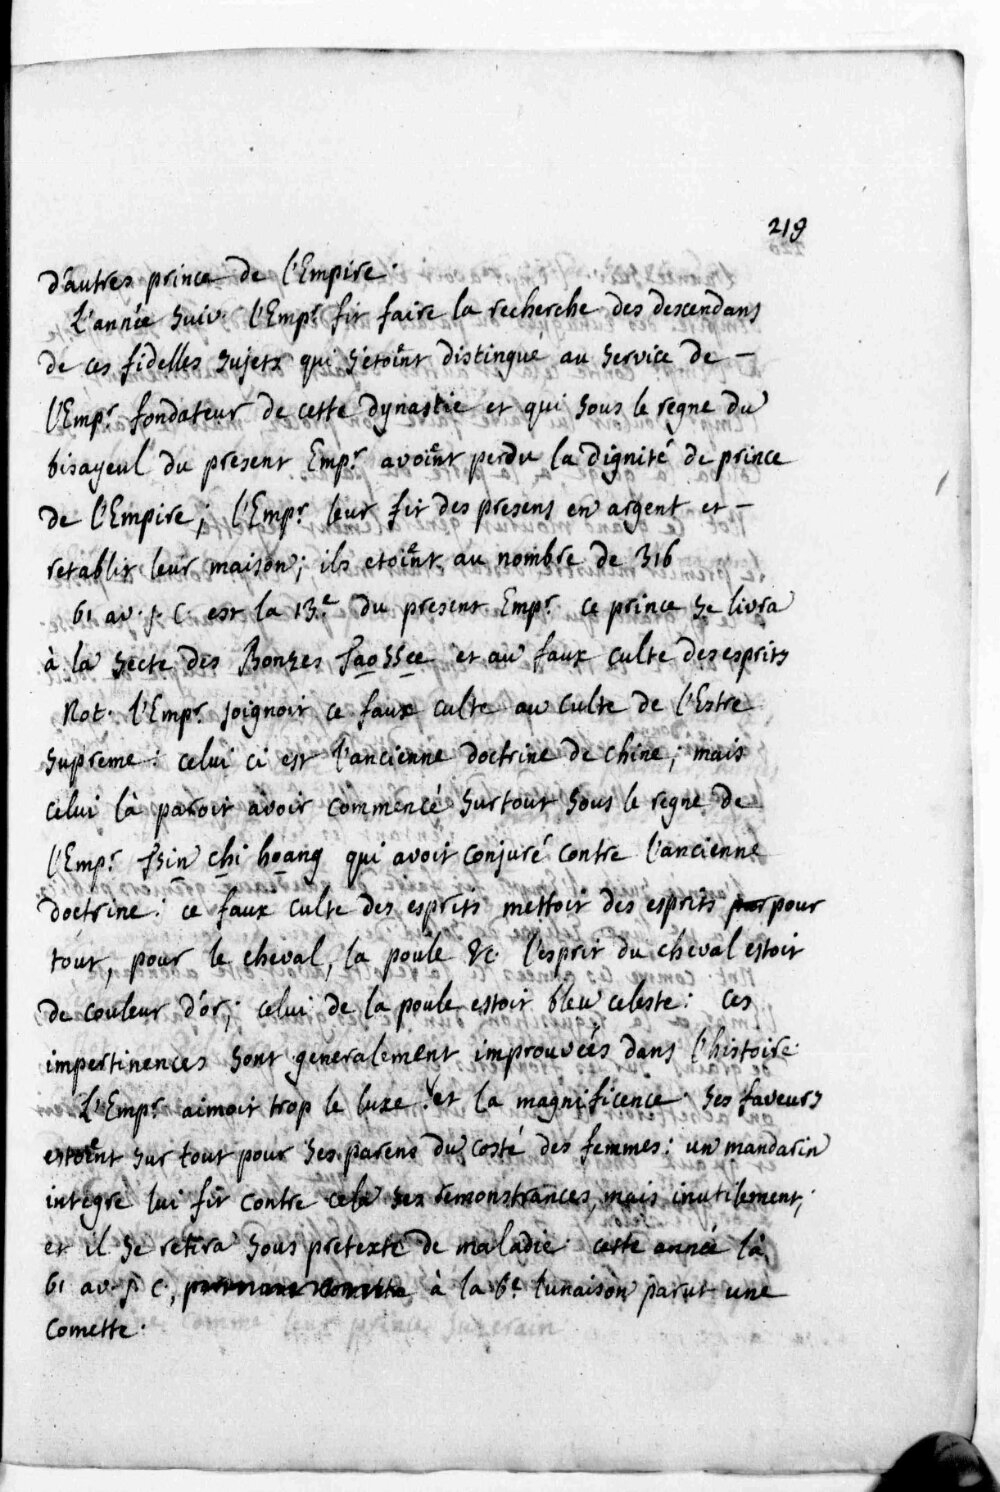 219
d'autres prince de l'Empire.
L'année suiv. l'Empr. fit faire la recherche des descendans
de ces fidelles sujets qui s'etoient distingué au service de –
l'Empr. fondateur de cette dynastie et qui sous le regne du
bisayeul du present Empr. avoient perdu la dignité de prince
de l'Empire; l'Empr. leur fit des presens en argent et –
retablit leur maison; ils etoient au nombre de 316
61 av. j. C. est la 13.e du present Empr. ce prince se livra
à la secte des Bonzes Taossee et au faux culte des esprits
Not. l'Empr. joignoit ce faux culte au culte de l'Estre
supreme: celui ci est l'ancienne doctrine de chine; mais
celui là paroit avoir commencé surtout sous le regne de
l'Empr. Tsin chi hoang qui avoit conjuré contre l'ancienne
doctrine: ce faux culte des esprits mettoit des esprits par pour
tout, pour le cheval, la poule &c. l'esprit du cheval estoit
de couleur d'or; celui de la poule estoit bleu celeste: ces
impertinences sont generalement improuvées dans l'histoire.
L'Empr. aimoit trop le luxe et la magnificence. ses faveurs
estoient sur tout pour ses parens du costé des femmes: un mandarin
integre lui fit contre cela ses remonstrances, mais inutilement;
et il se retira sous pretexte de maladie. cette année là
61 av. j. C., à la 6.e lunaison parut une
Comette.